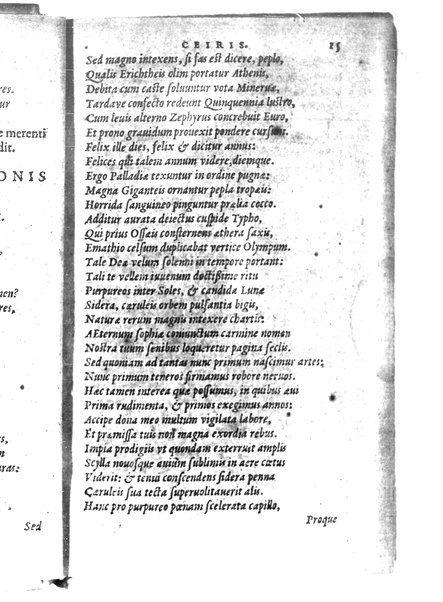 res.
ur
e merenti
dit.
ONIS
t.
r.
nen?
res,
s,
:
aras:
Sed
CEIRIS. 15
Sed magno intexens, si fas est dicere, peplo,
Qualis Erichtheis olim portatur Athenis,
Debita cum castæ soluuntur vota Mineruæ,
Tardaque confecto redeunt Quinquennia lustro,
Cum leuis alterno Zephyrus concrebuit Euro,
Et prono grauidum prouexit pondere cursum.
Felix ille dies, felix & dicitur annus:
Felices qui talem annum videre, diemque.
Ergo Palladiæ texuntur in ordine pugnæ:
Magna Giganteis ornantur pepla tropæis:
Horrida sanguineo pinguntur prælia cocco.
Additur aurata deiectus cuspide Typho,
Qui prius Ossæis consternens æthera saxis,
Emathio celsum duplicabat vertice Olympum.
Tale Deæ velum solenni in tempore portant:
Tali te vellem iuuenum doctissime ritu
Purpureos inter Soles, & candida Lunæ
Sidera, cæruleis orbem pulsantia bigis,
Naturæ rerum magnis intexere chartis:
AEternum sophiæ coniunctum carmine nomen
Nostra tuum senibus loqueretur pagina seclis.
Sed quoniam ad tantas nunc primum nascimur artes:
Nunc primum teneros firmamus robore neruos.
Hæc tamen interea quæ possumus, in quibus æui
Prima rudimenta, & primos exegimus annos:
Accipe dona meo multum vigilata labore,
Et præmissa tuis non magna exordia rebus.
Impia prodigiis vt quondam exterruit amplis
Scylla nouosque auium sublimis in aere cœtus
Viderit: & tenui conscendens sidera penna
Cæruleis sua tecta superuolitauerit alis.
Hanc pro purpureo pœnam scelerata capillo,
Proque